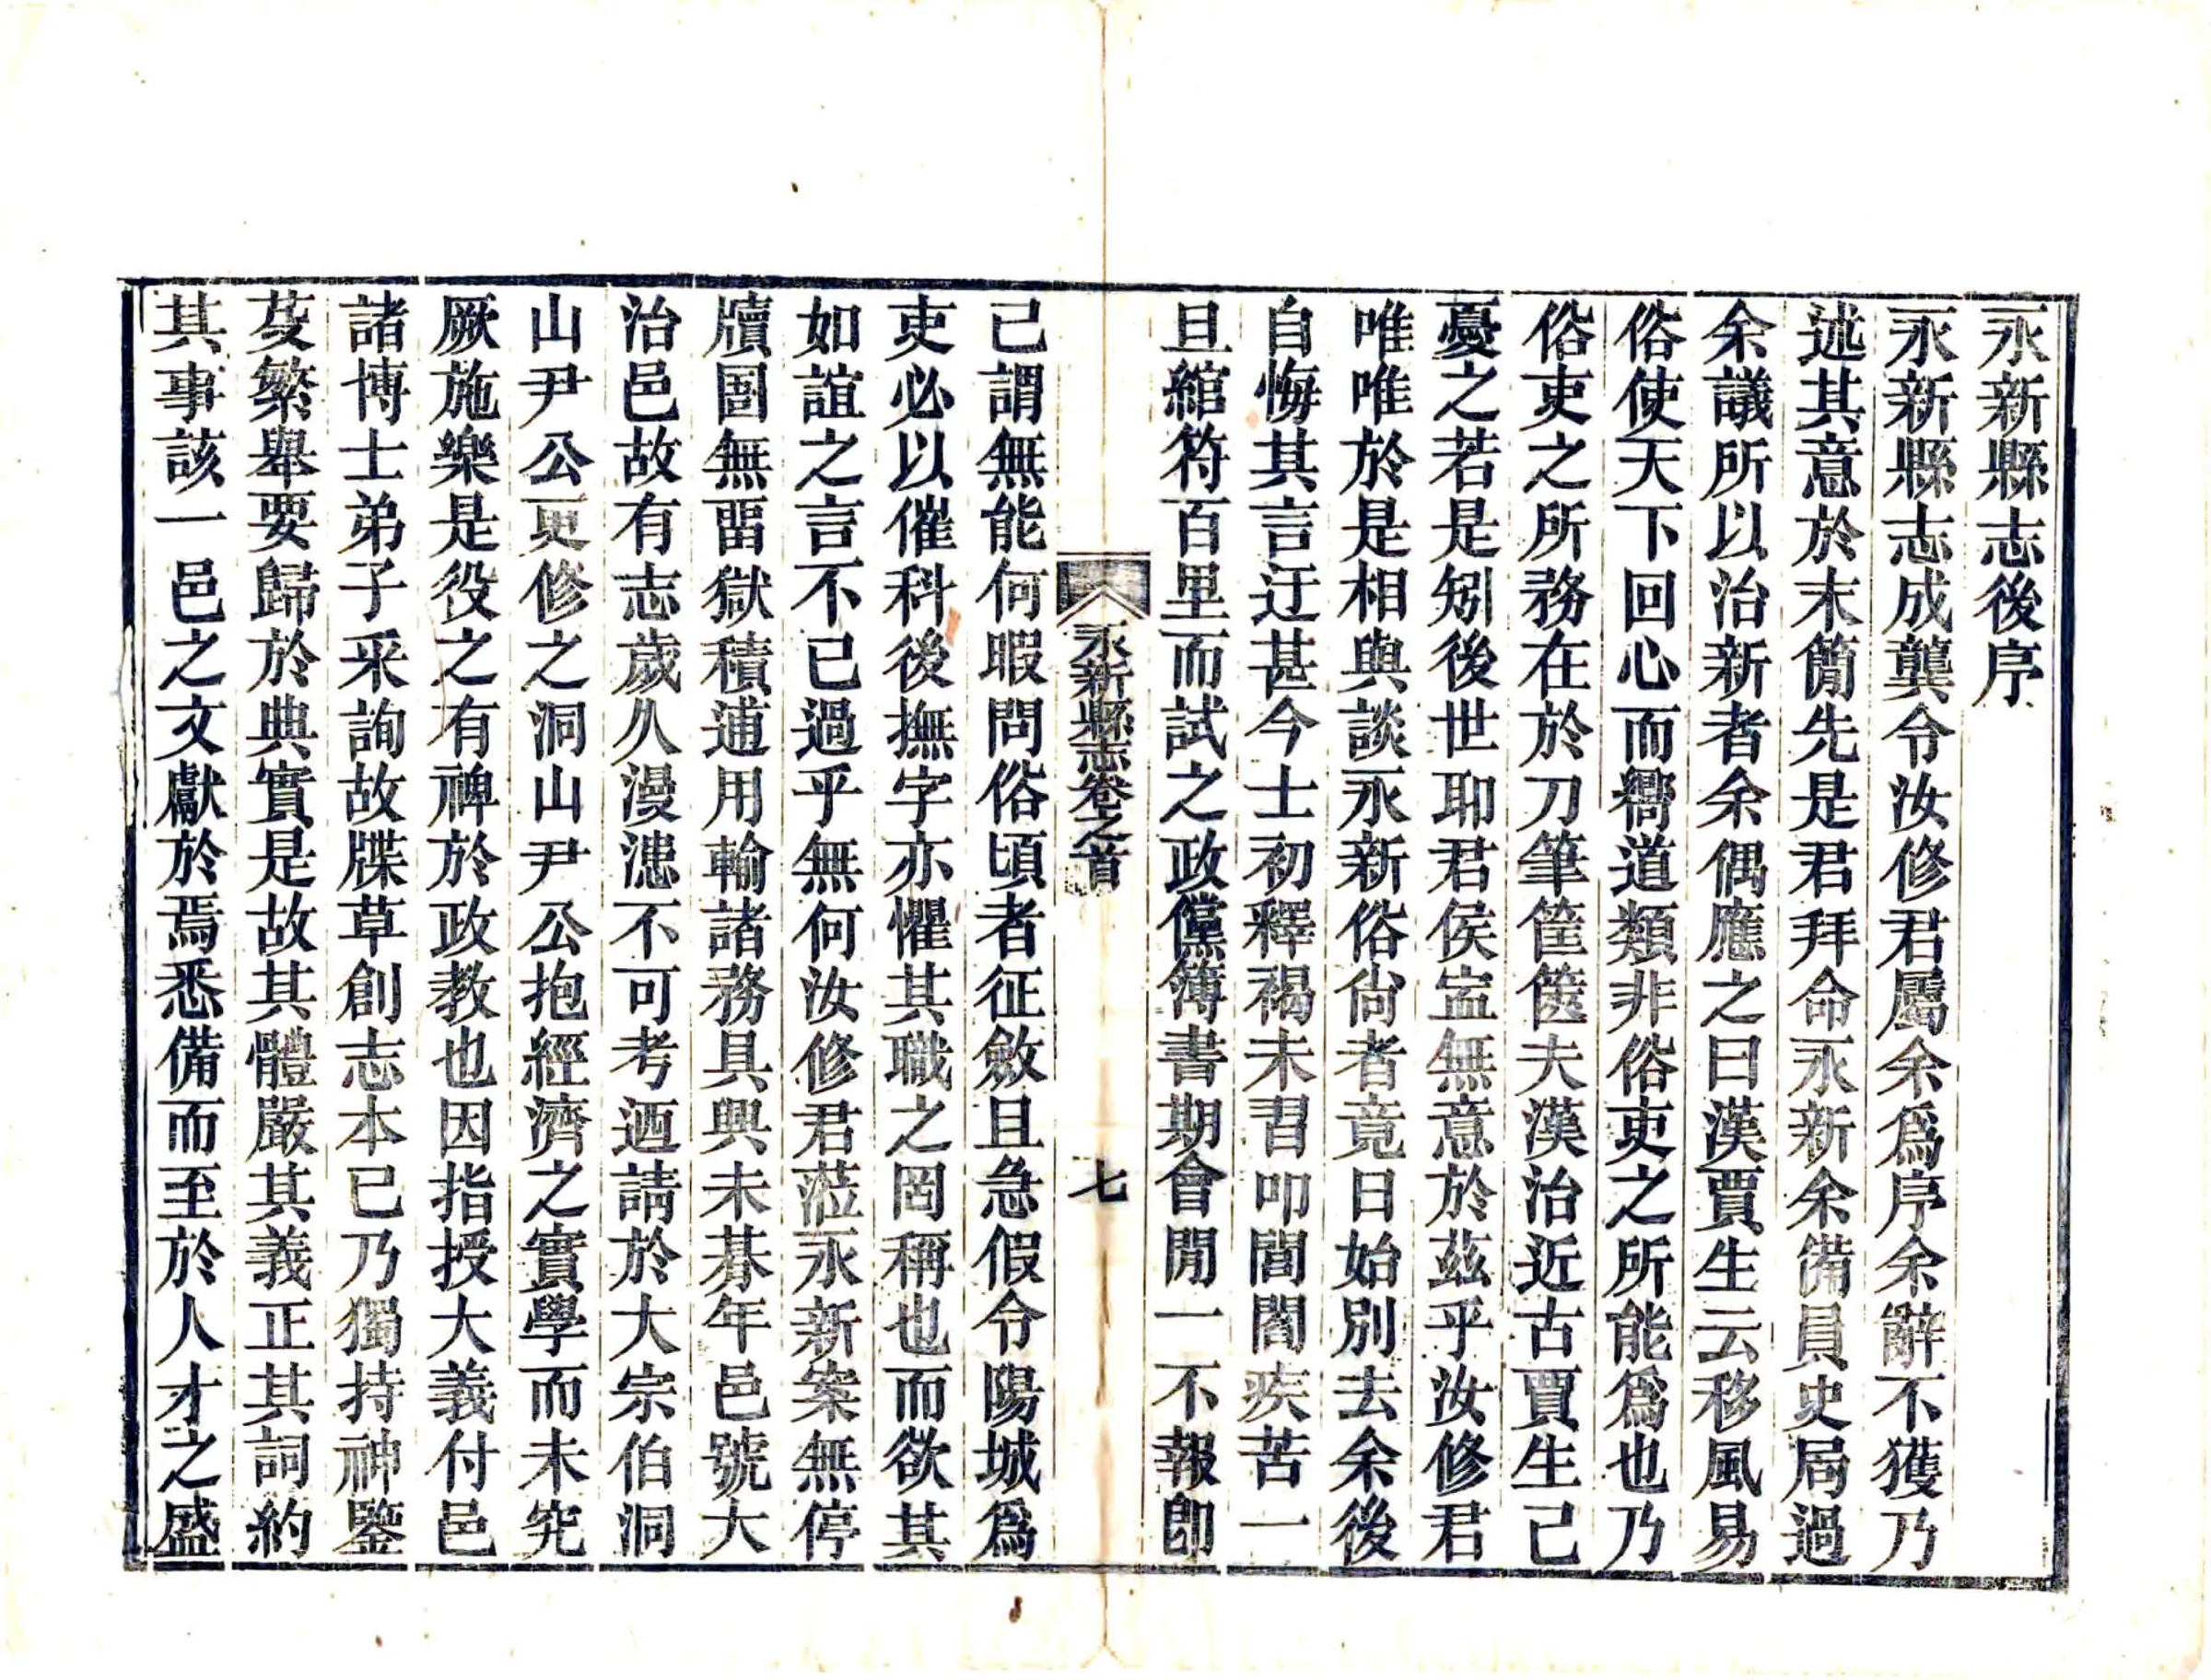 永新縣志後序
永新縣志成龔令汝修君屬余爲序余辭不獲乃
述其意於末簡先是君拜命永新余備員史局過
余議所以治新者余偶應之曰漢賈生云移風易
俗使天下回心而嚮道類非俗吏之所能爲也乃
俗吏之所務在於刀筆筐篋夫漢治近古賈生已
憂之若是矧後世耶君侯寍無意於茲乎汝修君
唯唯於是相與談永新俗尙者竟日始別去余後
自悔其言迂甚今士初釋褐未習叩閭閻疾苦一
旦綰符百里而試之政儻簿書期會閒一不報卽
永新縣志卷之首
七
已謂無能何暇問俗頃者征斂且急假令陽城爲
吏必以催科後撫字亦懼其職之罔稱也而欲其
如誼之言不已過乎無何汝修君蒞永新案無停
牘圄無畱獄積逋用輸諸務具興未朞年邑號大
治邑故有志歲久漫漶不可考迺請於大宗伯洞
山尹公更修之洞山尹公抱經濟之實學而未究
厥施樂是役之有裨於政教也因指授大義付邑
諸博士弟子釆詢故牒草創志本已乃獨持神鑒
芟繁舉要歸於典實是故其體嚴其義正其詞約
其事該一邑之文獻於焉悉備而至於人才之盛